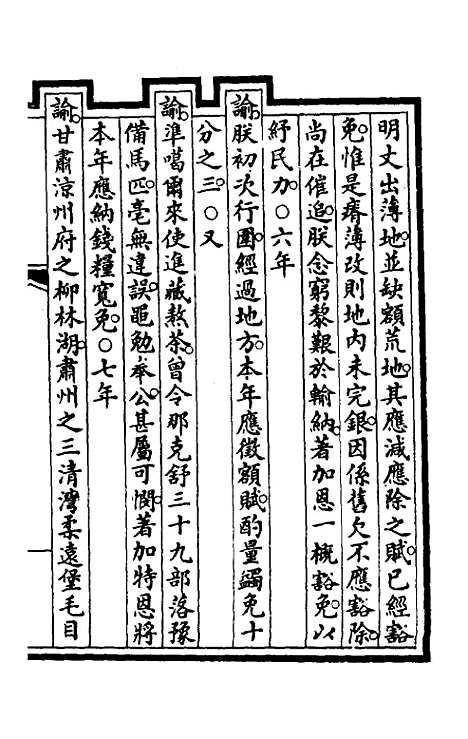 明丈出薄地。並缺額荒地。其應減應除之賦。已經豁
免。惟是瘠薄改則地内未完銀。因係舊欠不應豁除。
尚在催追。朕念窮黎艱於輸納。著加恩一概豁免。以
紓民力。○六年
諭。朕初次行圍。經過地方。本年應徵額賦。酌量蠲免十
分之三。○又
諭。準噶爾來使進藏熬茶。曾令那克舒三十九部落豫
備馬匹。毫無違誤。黽勉奉公。甚屬可憫。著加特恩將
本年應納錢糧寬免。○七年
諭。甘肅涼州府之柳林湖。肅州之三清灣柔遠堡毛目